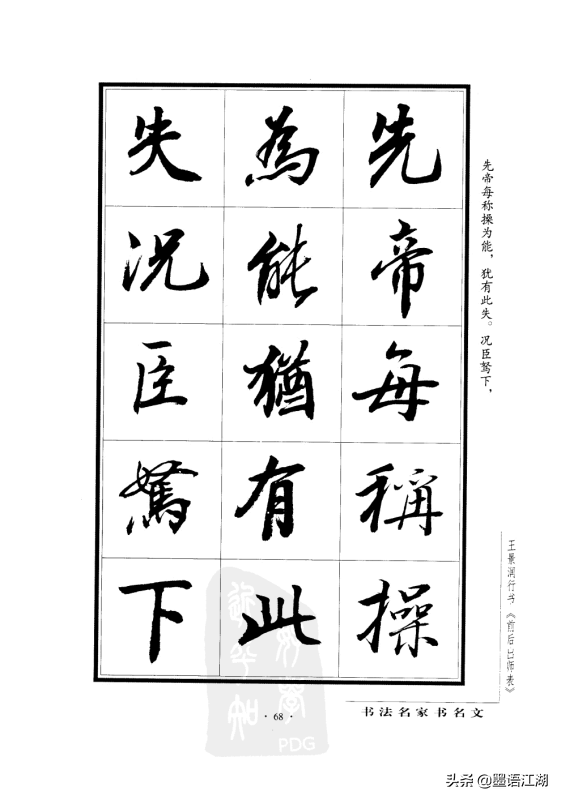 先帝每稱操
為能猶有此
失况臣駑下
先帝每称操为能，犹有此失。况臣驽下，
王景润行书《前后出师表》
书法名家书名文
·68·
PDG
头条@墨语江湖